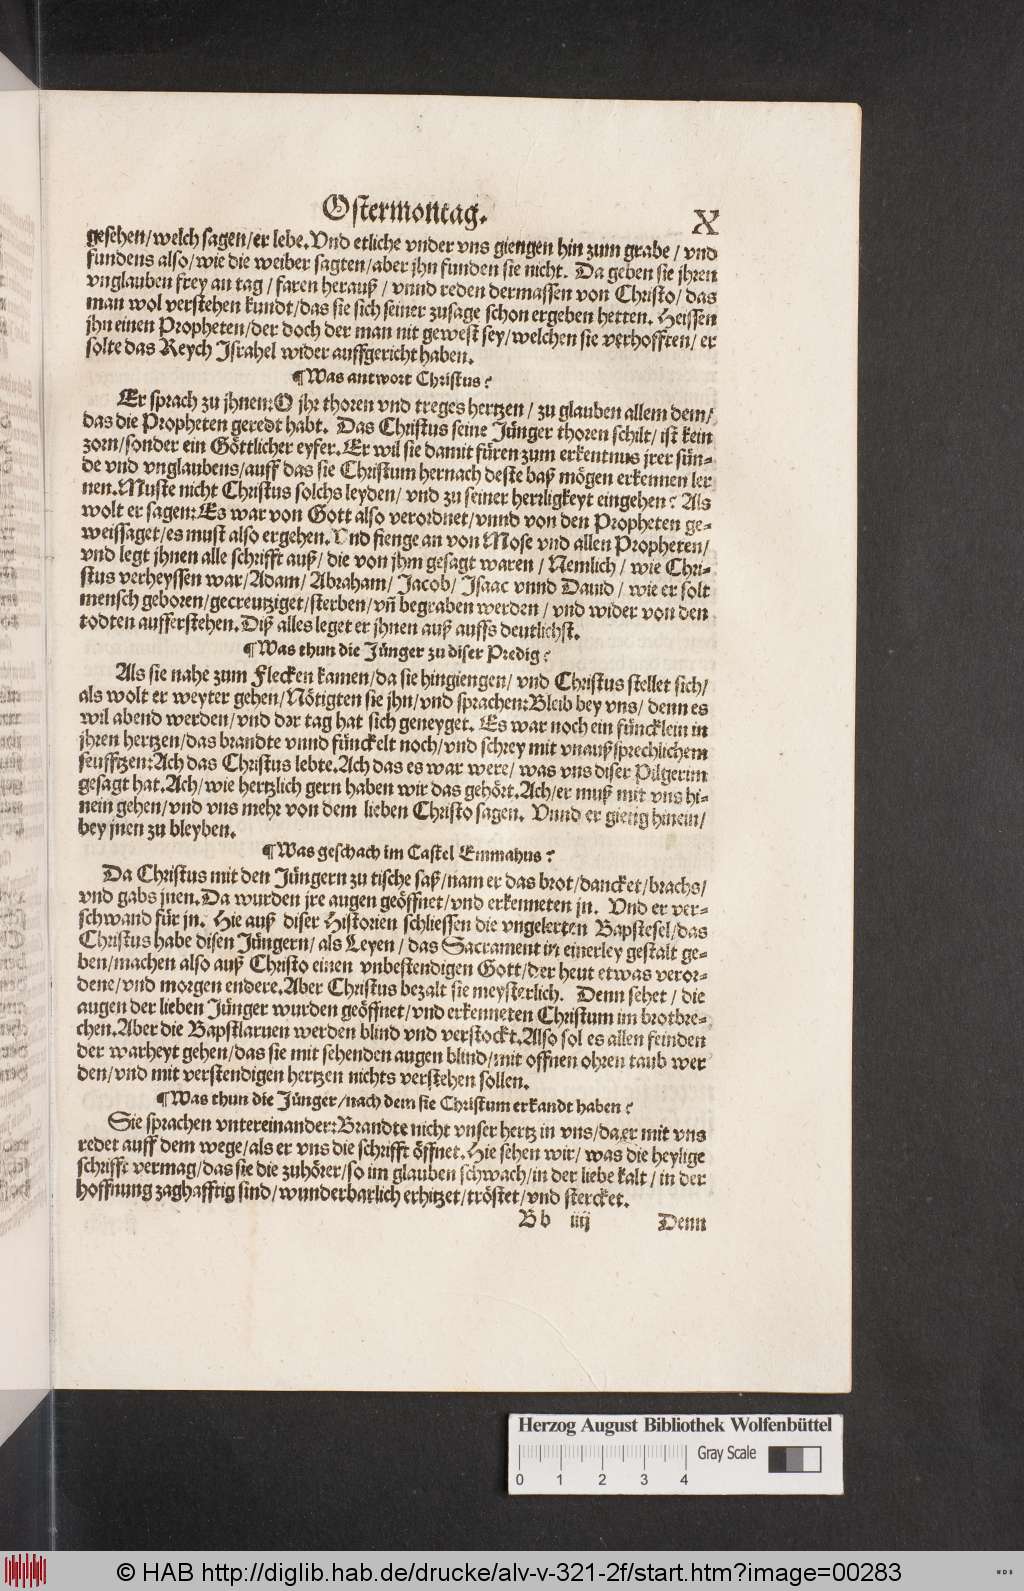 Ostermontag.
X
gesehen/welch sagen/er lebe.Vnd etliche vnder vns giengen hin zum grabe / vnd
fundens also/wie die weiber sagten/aber jhn funden sie nicht. Da geben sie jhren
vnglauben frey an tag / faren herauß / vnnd reden dermassen von Christo/ das
man wol verstehen kundt/das sie sich seiner zusage schon ergeben hetten. Heissen
jhn einen Propheten/der doch der man nit gewest sey/welchen sie verhofften/ er
solte das Reych Israhel wider auffgericht haben.
¶Was antwort Christus?
Er sprach zu jhnen:O jhr thoren vnd treges hertzen / zu glauben allem dem/
das die Propheten geredt habt. Das Christus seine Jünger thoren schilt/ ist kein
zorn/sonder ein Göttlicher eyfer.Er wil sie damit füren zum erkentnus jrer sün-
de vnd vnglaubens/auff das sie Christum hernach deste baß mögen erkennen ler
nen.Muste nicht Christus solchs leyden/ vnd zu seiner herrligkeyt eingehen? Als
wolt er sagen:Es war von Gott also verordnet/vnnd von den Propheten ge-
weissaget/es must also ergehen.Vnd fienge an von Mose vnd allen Propheten/
vnd legt jhnen alle schrifft auß/ die von jhm gesagt waren / Nemlich / wie Chri-
stus verheyssen war/Adam/ Abraham/ Jacob/ Isaac vnnd Dauid / wie er solt
mensch geboren/gecreutziget/sterben/vñ begraben werden / vnd wider von den
todten aufferstehen.Diß alles leget er jhnen auß auffs deutlichst.
¶Was thun die Jünger zu diser Predig?
Als sie nahe zum Flecken kamen/da sie hingiengen/ vnd Christus stellet sich/
als wolt er weyter gehen/Nötigten sie jhn/vnd sprachen:Bleib bey vns/ denn es
wil abend werden/vnd der tag hat sich geneyget. Es war noch ein füncklein in
jhren hertzen/das brandte vnnd fünckelt noch/vnd schrey mit vnaußsprechlichem
seufftzen:Ach das Christus lebte.Ach das es war were/ was vns diser Pilgerim
gesagt hat.Ach/wie hertzlich gern haben wir das gehört.Ach/er muß mit vns hi-
nein gehen/vnd vns mehr von dem lieben Christo sagen. Vnnd er gieng hinein/
bey jnen zu bleyben.
¶Was geschach im Castel Emmahus?
Da Christus mit den Jüngern zu tische saß/nam er das brot/dancket/brachs/
vnd gabs jnen.Da wurden jre augen geöffnet/vnd erkenneten jn. Vnd er ver-
schwand für jn. Hie auß diser Historien schliessen die vngelerten Bapstesel/das
Christus habe disen Jüngern/ als Leyen / das Sacrament in einerley gestalt ge-
ben/machen also auß Christo einen vnbestendigen Gott/der heut etwas veror-
dene/vnd morgen endere.Aber Christus bezalt sie meysterlich. Denn sehet / die
augen der lieben Jünger wurden geöffnet/vnd erkenneten Christum im brotbre-
chen.Aber die Bapstlaruen werden blind vnd verstockt.Also sol es allen feinden
der warheyt gehen/das sie mit sehenden augen blind/mit offnen ohren taub wer
den/vnd mit verstendigen hertzen nichts verstehen sollen.
¶Was thun die Jünger/nach dem sie Christum erkandt haben?
Sie sprachen vntereinander:Brandte nicht vnser hertz in vns/da er mit vns
redet auff dem wege/als er vns die schrifft öffnet.Hie sehen wir/ was die heylige
schrifft vermag/das sie die zuhörer/so im glauben schwach/in der liebe kalt / in der
hoffnung zaghafftig sind/wunderbarlich erhitzet/tröstet/vnd stercket.
Bb iiij Denn
Herzog August Bibliothek Wolfenbüttel
Gray Scale
0 1 2 3 4
© HAB http://diglib.hab.de/drucke/alv-v-321-2f/start.htm?image=00283